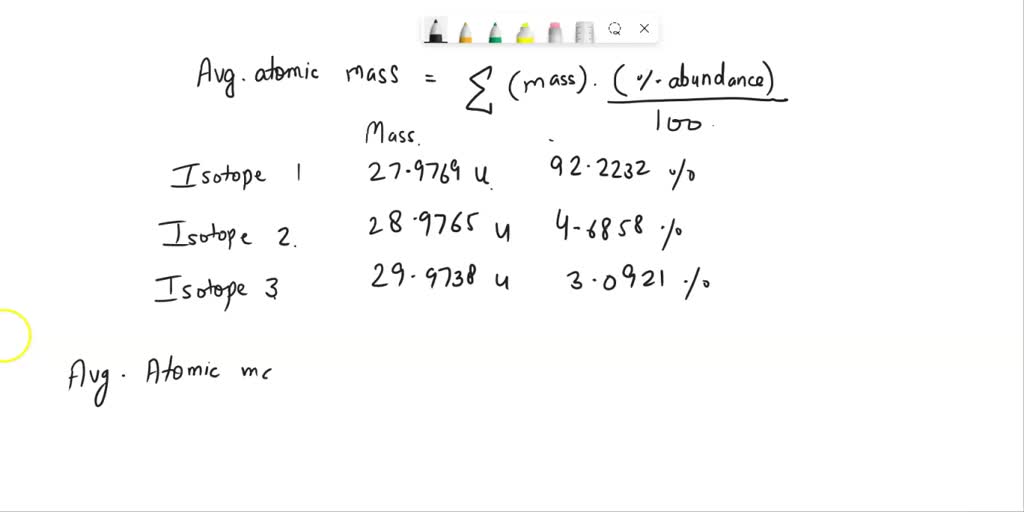 Avg. atomic mass = ∑ (mass). (%. abundance)
100.
Mass.
Isotope 1 27.9769 u. 92.2232 %
Isotope 2. 28.9765 u 4.6858 %
Isotope 3 29.9738 u 3.0921 %
Avg. Atomic ma